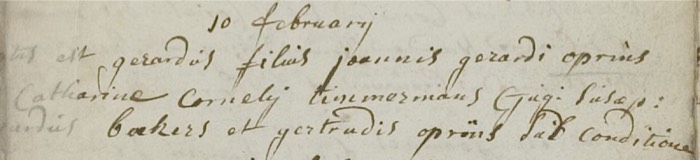 10 february
est gerardus filius joannis gerardi oprins
Catharine Cornelij timmermans Conjugū Susep:
bækers et gertrudis oprins sub conditione